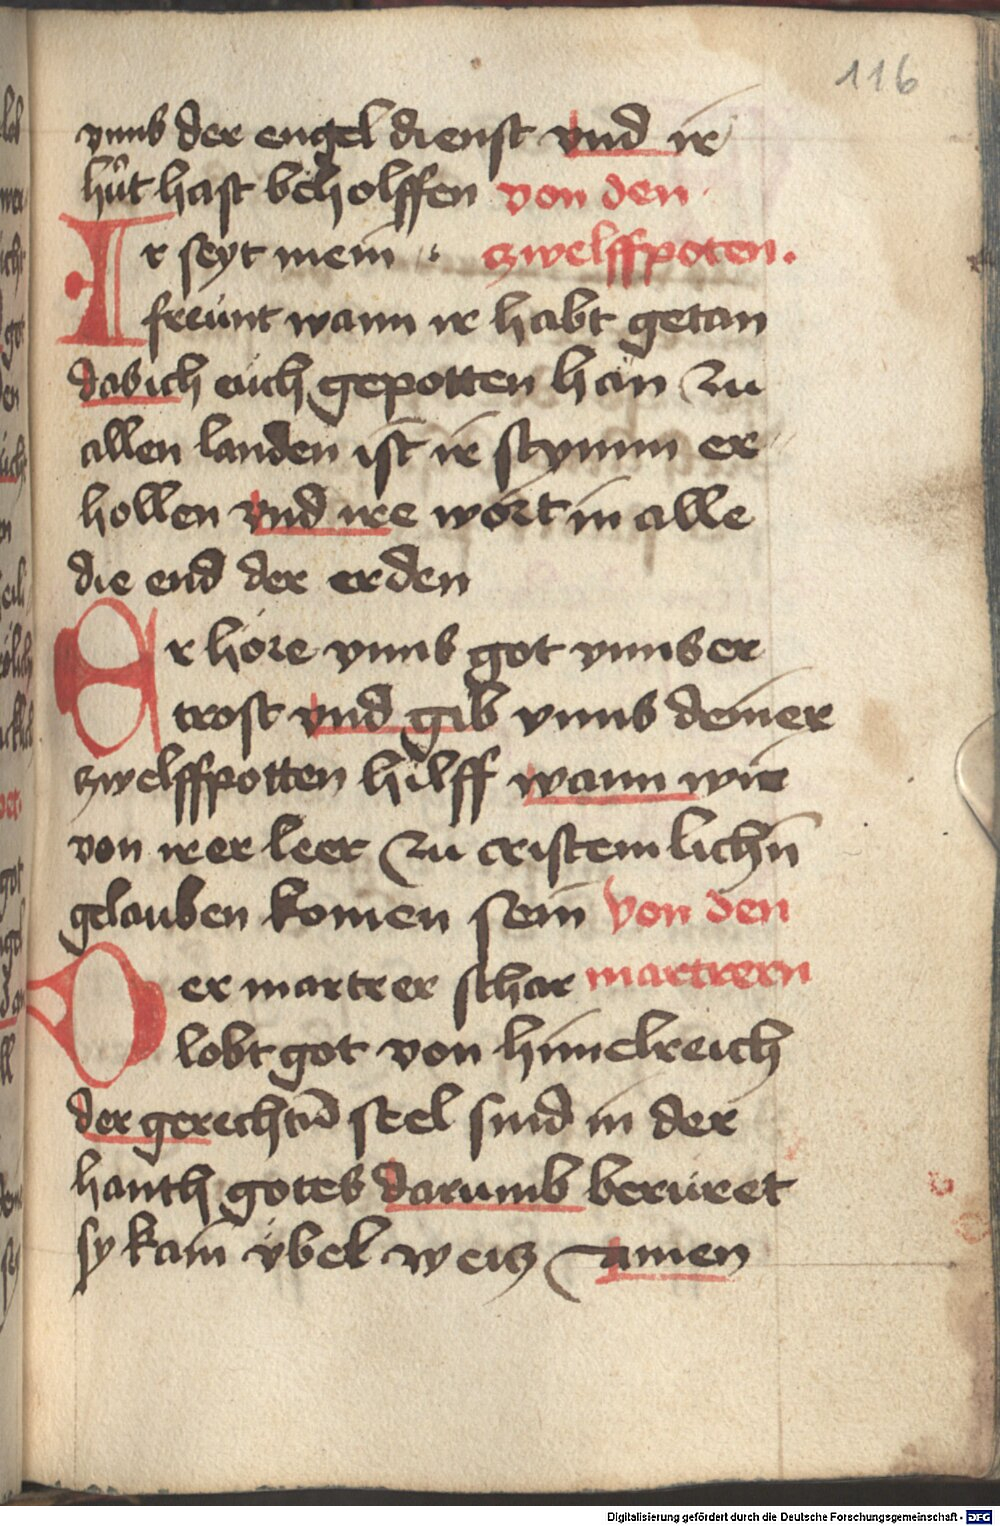 116
vnns der engel dienst vnd ir
hůt hast beholffen von den
Ir seyt mein zwelffpoten.
freünt wann ir habt getan
das ich eüch gepotten han zu
allen landen ist ir stymm er
hollen vnd ire wort in alle
die end der erden
Er höre vnns got vnnser
trost vnd gib vnns deiner
zwelffpotten hilff wann wir
von irer leer zu cristemlichn̄
gelauben komen sein von den
Der martrer schar martrern
lobt got von himelreich
der gerechtn̄ seel sind in der
hanth gotes darumb berüret
sy kain übel weis amen
Digitalisierung gefördert durch die Deutsche Forschungsgemeinschaft - DFG